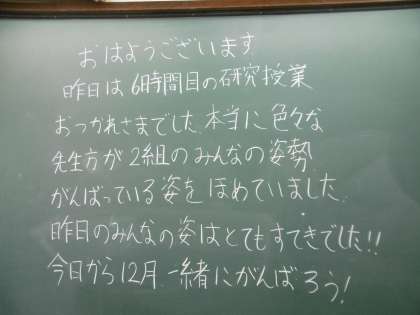 おはようございます
昨日は6時間目の研究授業
おつかれさまでした。本当に色々な
先生方が2組のみんなの姿勢
がんばっている姿をほめていました。
昨日のみんなの姿はとてもすてきでした!!
今日から12月。一緒にがんばろう!